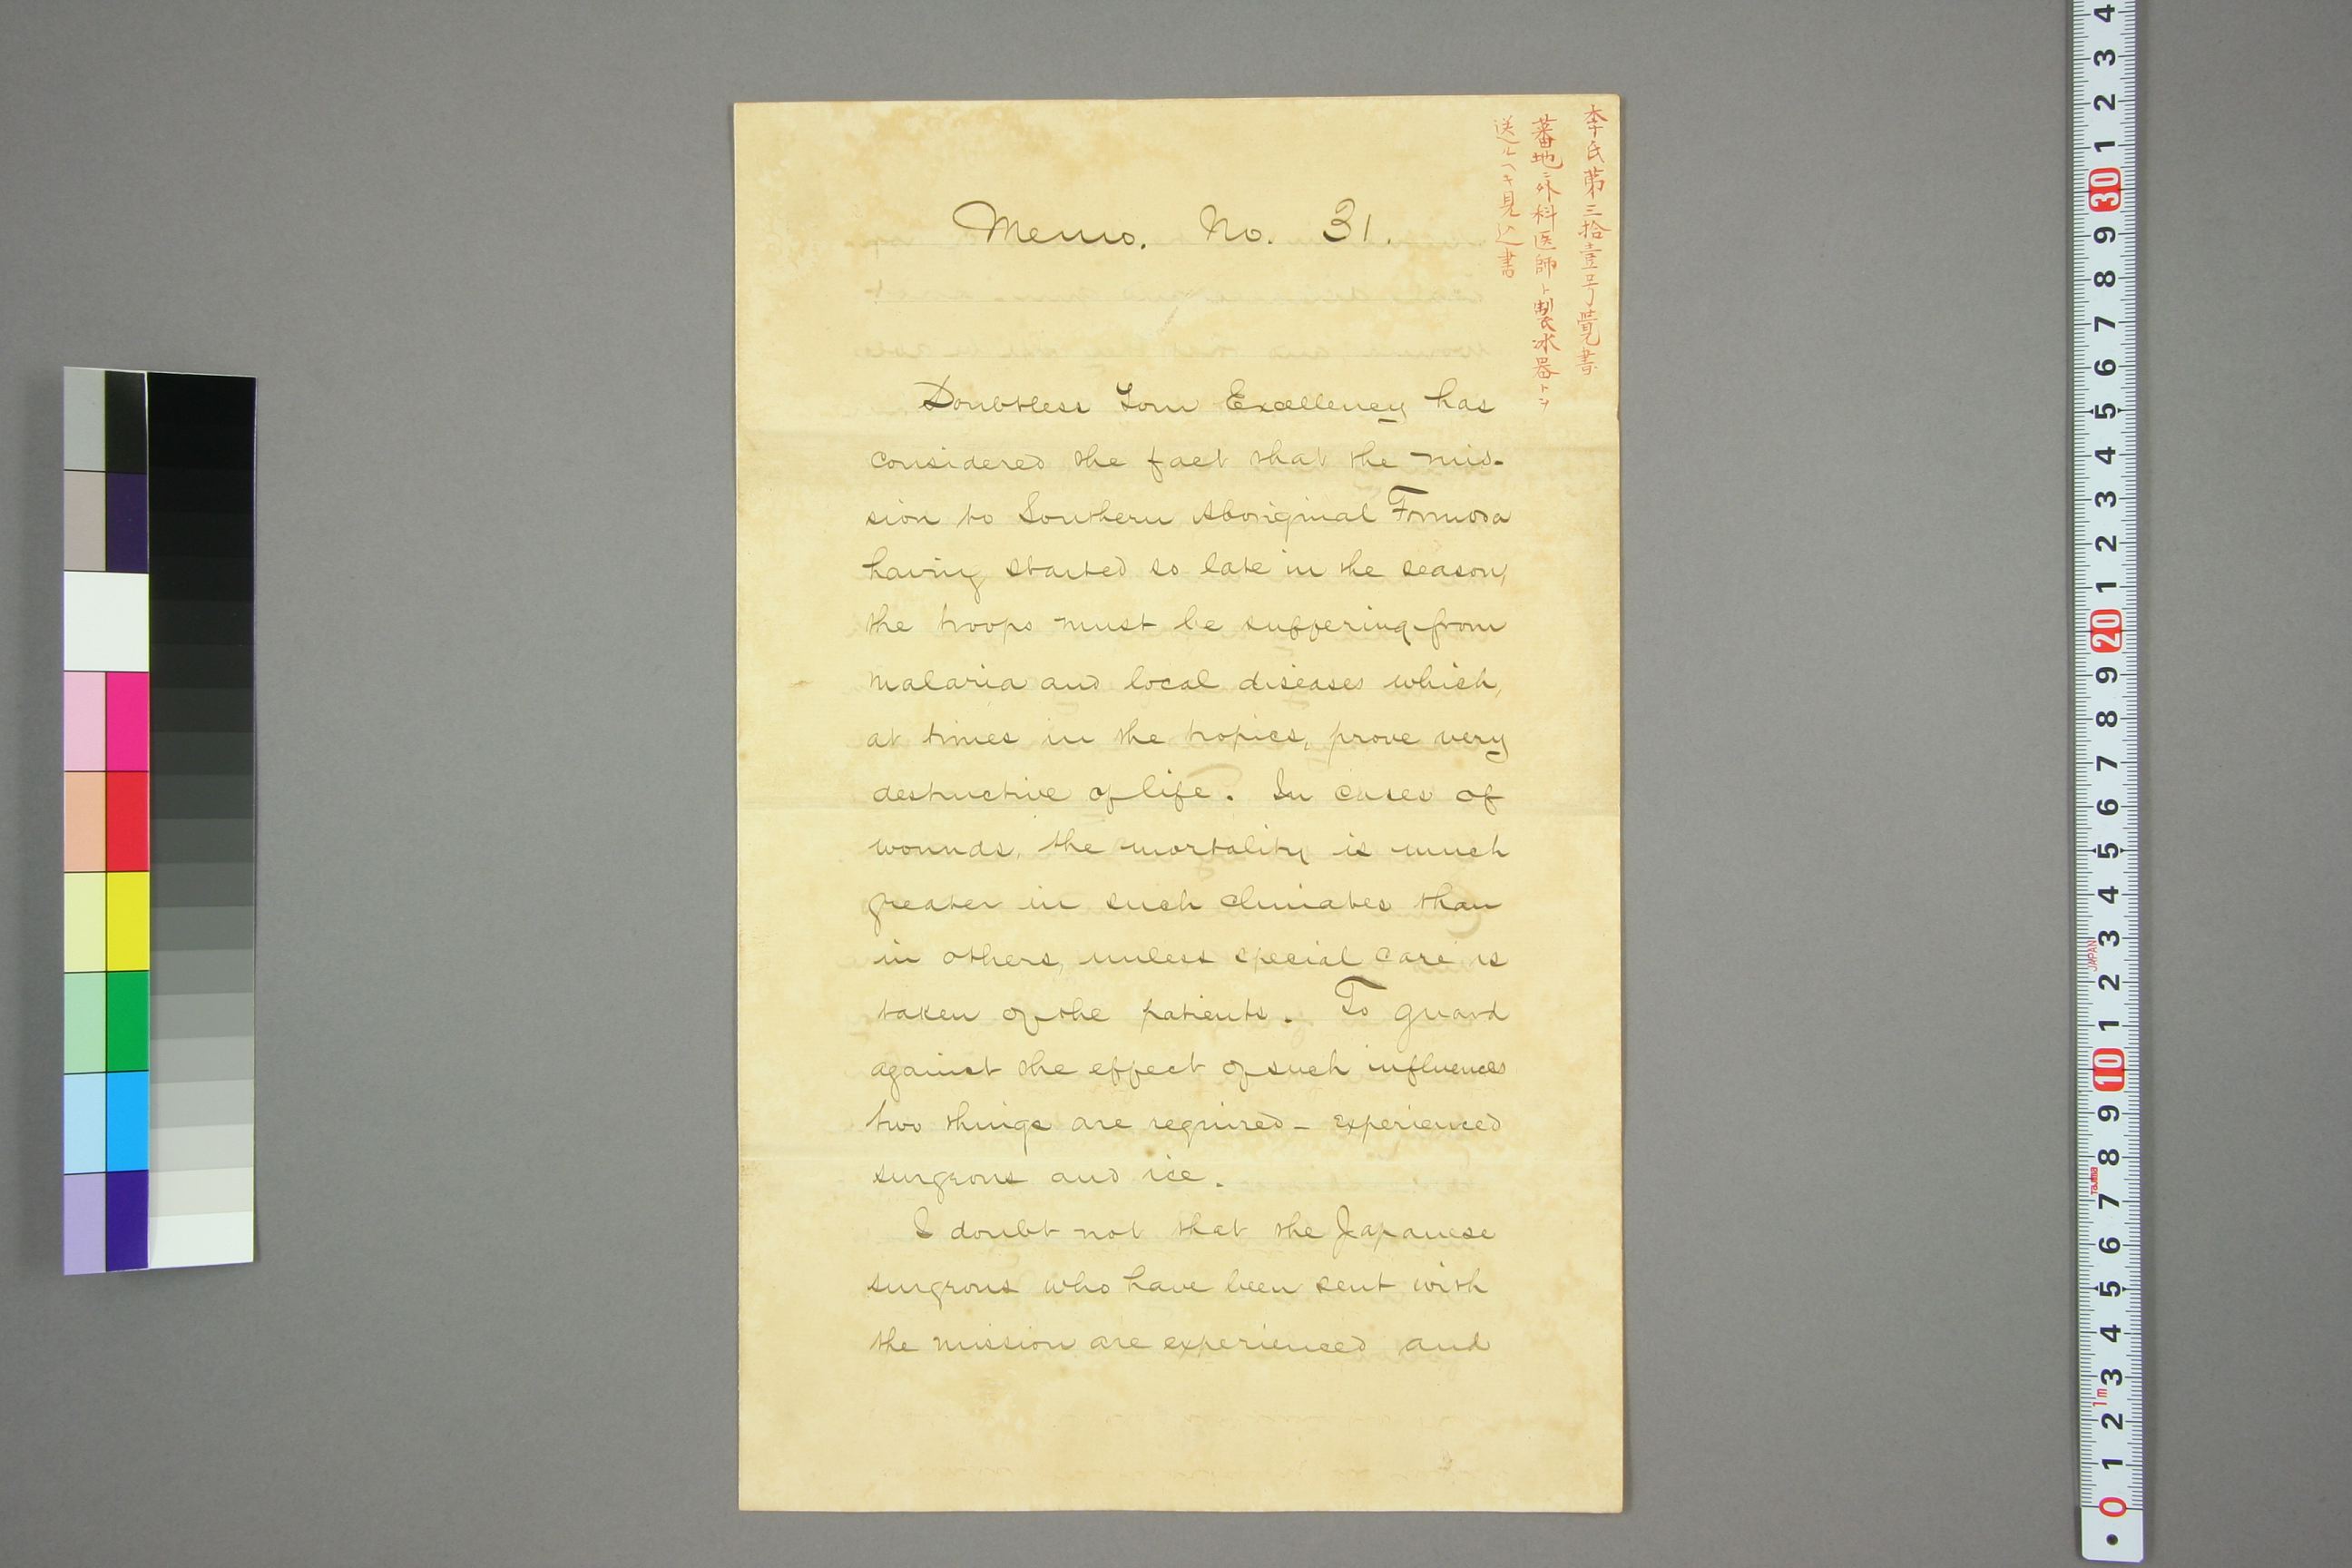 李氏第三拾壹号覺書
蕃地ニ外科医師ト製氷器トヲ
送ルヘキ見込書
Memo. No. 31.
Doubtless Your Excellency has
considered the fact that the mis-
sion to Southern Aboriginal Formosa
having started so late in the season,
the troops must be suffering from
malaria and local diseases which,
at times in the tropics, prove very
destructive of life. In cases of
wounds, the mortality is much
greater in such climates than
in others, unless special care is
taken of the patients. To guard
against the effect of such influences
two things are required - experienced
surgeons and ice.
I doubt not that the Japanese
surgeons who have been sent with
the mission are experienced and
4
3
2
1
30
9
8
7
6
5
4
3
2
1
20
9
8
7
6
5
4
3
JAPAN
2
1
10
9
8
TAJIMA
7
6
5
4
3
1m
2
1
0